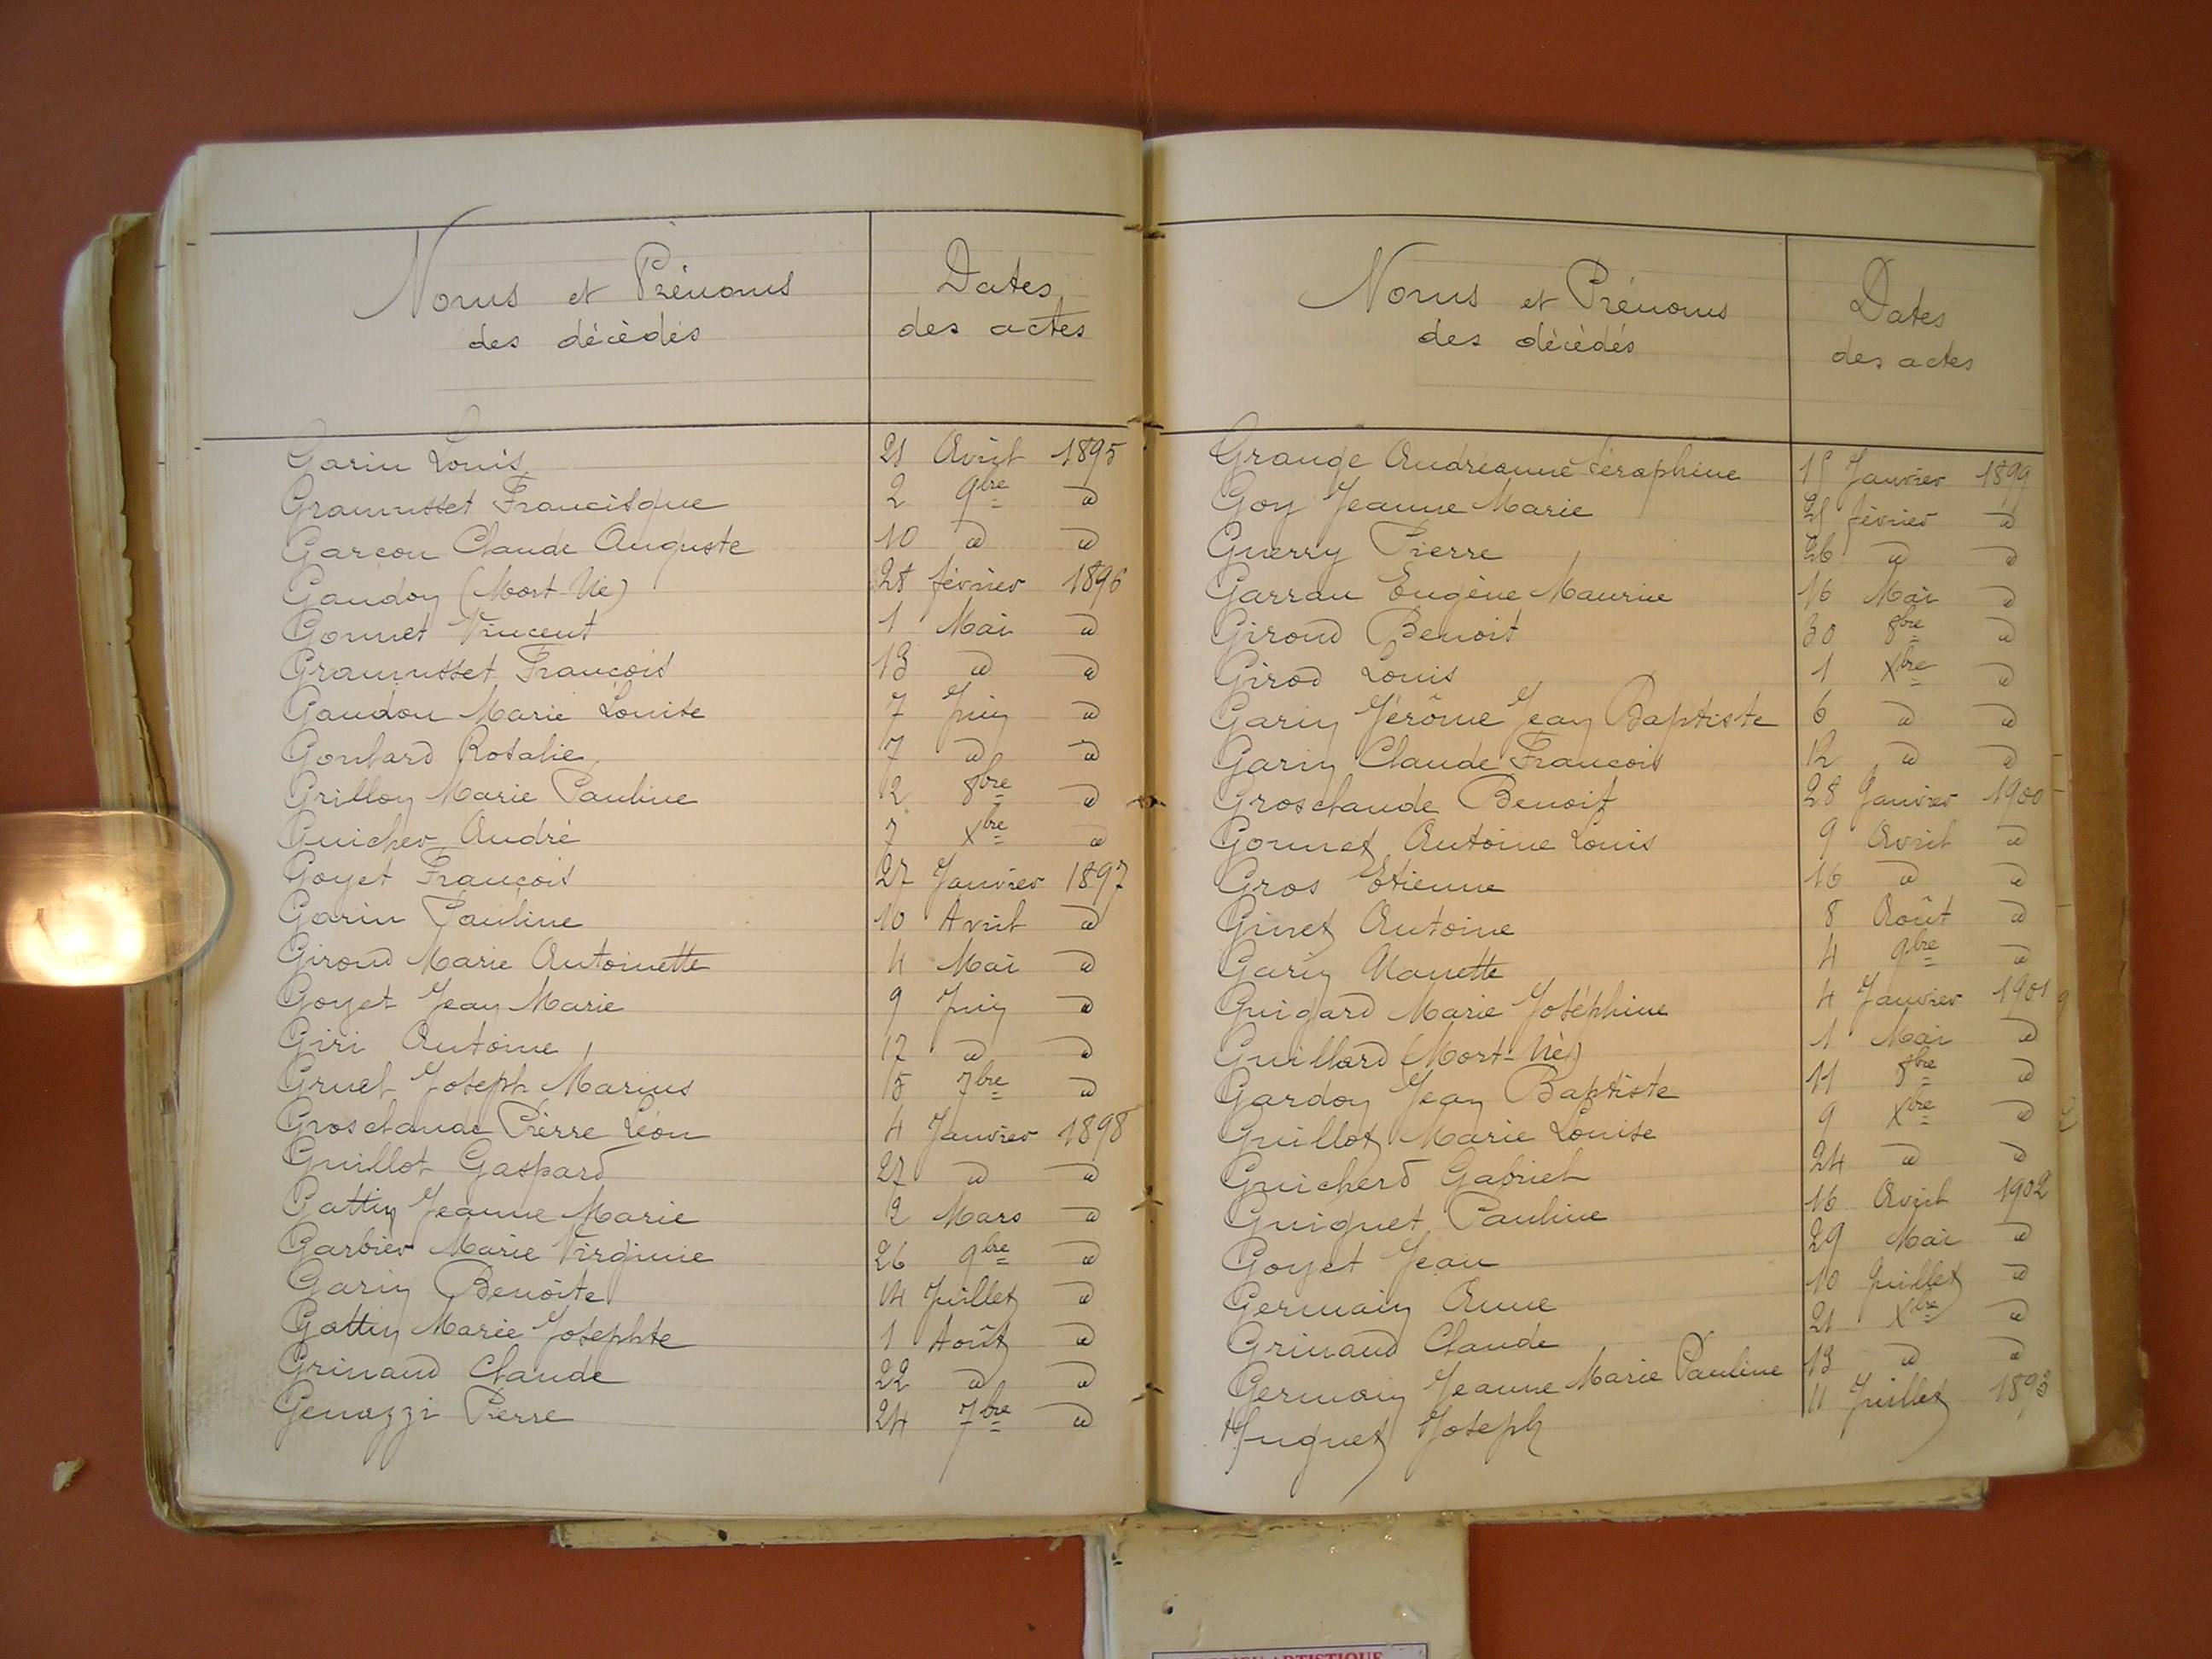 Noms et Prénoms
des décédés
Dates
des actes
Garin Louis 21 Avril 1895
Grammusset Francisque 2 9bre d
Garçon Claude Auguste 10 d d
Gaudoy (Mort-Né) 28 février 1896
Gonnet Vincent 1 Mai d
Grammusset François 13 d d
Gaudon Marie Louise 7 Juin d
Goulard Rosalie 7 d d
Grillon Marie Pauline 12 8bre d
Guicher André 7 Xbre d
Goyet François 27 Janvier 1897
Garin Pauline 10 Avril d
Giroud Marie Antoinette 4 Mai d
Goyet Jean Marie 9 Juin d
Giri Antoine 17 d d
Gruel Joseph Marius 15 7bre d
Groschaude Pierre Léon 4 Janvier 1898
Guillot Gaspard 27 d d
Gattin Jeanne Marie 12 Mars d
Garbier Marie Virginie 26 9bre d
Garin Benoîte 14 Juillet d
Gattin Marie Josephte 1 Août d
Grinand Claude 22 d d
Genazzi Pierre 24 7bre d
Noms et Prénoms
des décédés
Dates
des actes
Grange Andréanne Séraphine 15 Janvier 1899
Goy Jeanne Marie 25 février d
Guerry Pierre 26 d d
Garrau Eugène Maurice 16 Mai d
Giroud Benoit 30 8bre d
Girod Louis 1 Xbre d
Garin Jérôme Jean Baptiste 6 d d
Garin Claude François 12 d d
Groschaude Benoit 28 Janvier 1900
Gonnet Antoine Louis 9 Avril d
Gros Etienne 16 d d
Ginet Antoine 8 Août d
Garin Nanette 4 9bre d
Guigard Marie Joséphine 4 Janvier 1901
Guillard (Mort-Né) 1 Mai d
Gardon Jean Baptiste 11 8bre d
Guillot Marie Louise 9 Xbre d
Guicherd Gabriel 24 d d
Guiguet Pauline 16 Avril 1902
Goyet Jean 29 Mai d
Germain Anne 10 Juillet d
Grinand Claude 21 Xbre d
Germain Jeanne Marie Pauline 13 d d
Huguet Joseph 11 Juillet 1893